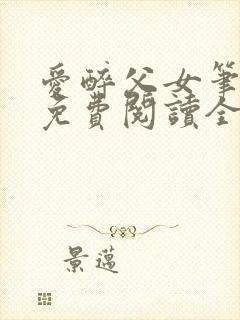 愛醉父女筆
免費閱讀全
景邁